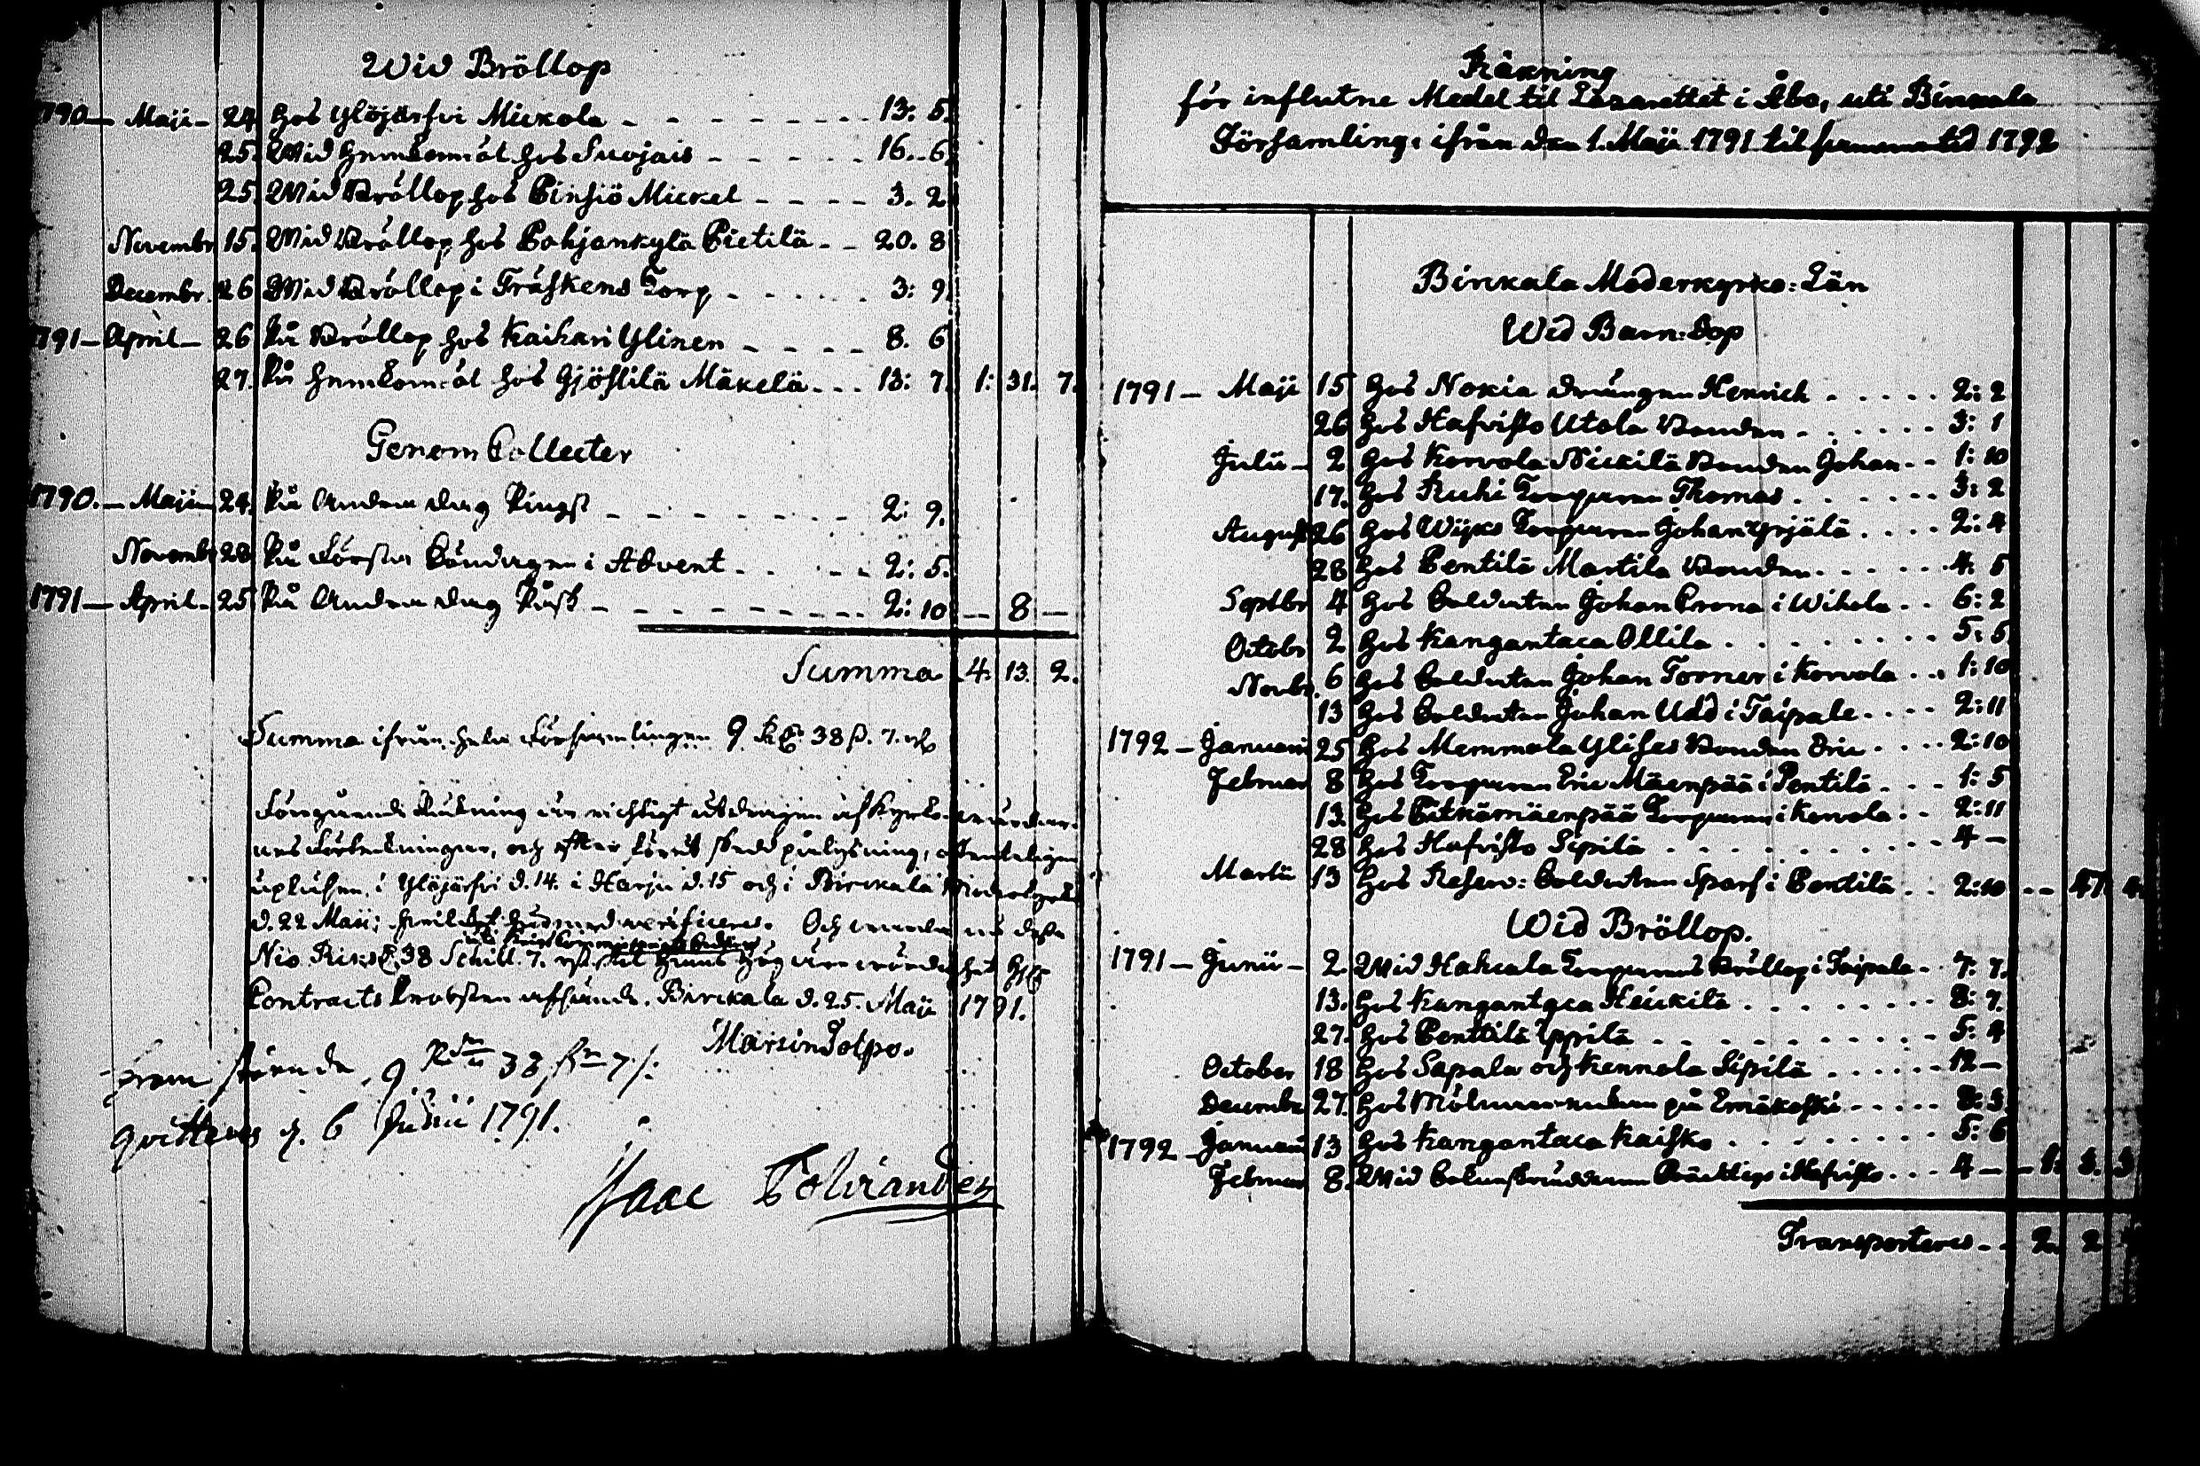 Wid Bröllop
1790 — Maji — 24 hos Ylöjärfvi Mickola - - - - - - - - 13: 5.
25. Wid hemkomöl hos Suojais - - - - - 16. 6.
25. Wid Bröllop hos Pinsiö Mickel - - - - 3. 2
Novembr 15. Wid Bröllop hos Pohjankylä Pietilä - - 20. 8
Decembr. 26 Wid Bröllop i Träskens Torp - - - - - 3: 9.
1791 — April — 26 På Bröllop hos Kaihari Ylinen - - - - 8. 6
27. På hemkomöl hos Gjöstilä Mäkelä - - - 13: 7. 1: 31. 7.
Genom Collecter
1790. — Maji — 24. På Andra dag Pingst - - - - - - - 2: 9.
Novembr 28 På Första Söndagen i Advent - - - - 2: 5.
1791 — April - 25 På Andra dag Påsk - - - - - - - - 2: 10 — 8 —
Summa 4: 13. 2.
Summa ifrån hela Församlingen 9 Rd 38 s. 7. rst
Föregående Räkning är richtigt utdragen af Kyrko-
nes Förteckningar, och efter förut skedd pålysning, offenteligen
upläsen i Ylöjärfvi d. 14. i Harju d. 15 och i Birckala Moderkyrka
d. 22 Maji; hvilket härmed verificeras. Och
Nio Riksd 38 Schill. 7. rst til
Contracts Prosten afsände. Birckala d. 25. Maji 1791.
Martin Tolpo.
Fram stående 9 Rd 38 s 7 /:
qvitteras d. 6 Junii 1791.
Isaac Tolviander
Räkning
för influtne Medel til Lazarettet i Åbo, uti Birckala
Församling: ifrån den 1. Maji 1791 til samma tid 1792
Birckala Moderkyrko: Län
Wid Barn: Dop
1791 — Maji 15 hos Nokia drängen Henrich - - - - - 2: 2
26 hos Hafvisto Utola Bonden - - - - - - 3: 1
Julii - 2 hos Korvola Nickilä Bonden Johan - - 1: 10
17. hos Ruhi Torparen Thomas - - - - - - 3: 2
August 26 hos Wijks Torparen Johan Yrjälä - - - - 2: 4
28 hos Pentilä Martila Bonden - - - - - - 4: 5
Septbr 4 hos Soldaten Johan Prona i Wihola - - 6: 2
Octobr 2 hos Kangantaca Ollila - - - - - - - - 5: 5
Novbr. 6 hos Soldaten Johan Torner i Korvola - - 1: 10
13 hos Soldaten Johan Udd i Taipale - - - - 2: 11
1792 — Januarii 25 hos Memmola Ylises Bonden Eric - - - - 2: 10
Februar 8 hos Torparen Eric Mäenpää i Pentilä - - - 1: 5
13. hos Pitkämäenpää Torparen i Korvola - - 2: 11
28 hos Hafvisto Sipilä - - - - - - - - - 4 —
Martii 13 hos Reserv: Soldaten Sparf i Pentilä - - 2: 10 - - 47. 4.
Wid Bröllop.
1791 — Junii — 2. Wid Hakala Torparens Bröllop i Taipale - - 7: 7.
13. hos Kangantaca Heickilä - - - - - - - 8: 7.
27. hos Penttilä Yppilä - - - - - - - - - 5: 4
October 18 hos Sapala och Kennola Sipilä - - - - - - 12 —
Decembr 27. hos Mölnaren på Emäkoski - - - - - 8: 3.
1792 — Januari 13 hos Kangantaca Kaisko - - - - - - - - 5: 6
Februar 8. Wid i Hafvisto - - - 4 — — 1: 3. 3
Transporteres - - 2. 2